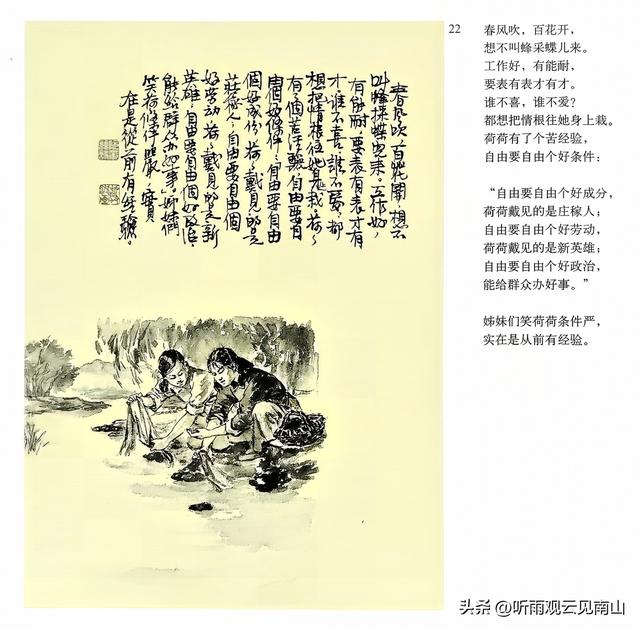 春风吹，百花開，想不
叫蜂採蝶兒来。工作好，
有能耐，要表有表才有
才。誰不喜，誰不爱，都
想把情根往她身栽。荷々
有了個苦经驗，自由要自
由個好條件：自由要自由
個好成份，荷々戴見的是
莊稼人，自由要自由個
好劳动，荷々戴見的是新
英雄，自由要自由個好政治，
能给群众办好事。姊妹們
笑荷荷條件嚴，實
在是從前有经驗。
22
春风吹，百花开，
想不叫蜂采蝶儿来。
工作好，有能耐，
要表有表才有才。
谁不喜，谁不爱？
都想把情根往她身上栽。
荷荷有了个苦经验，
自由要自由个好条件：
“自由要自由个好成分，
荷荷戴见的是庄稼人；
自由要自由个好劳动，
荷荷戴见的是新英雄；
自由要自由个好政治，
能给群众办好事。”
姊妹们笑荷荷条件严，
实在是从前有经验。
头条 @听雨观云见南山